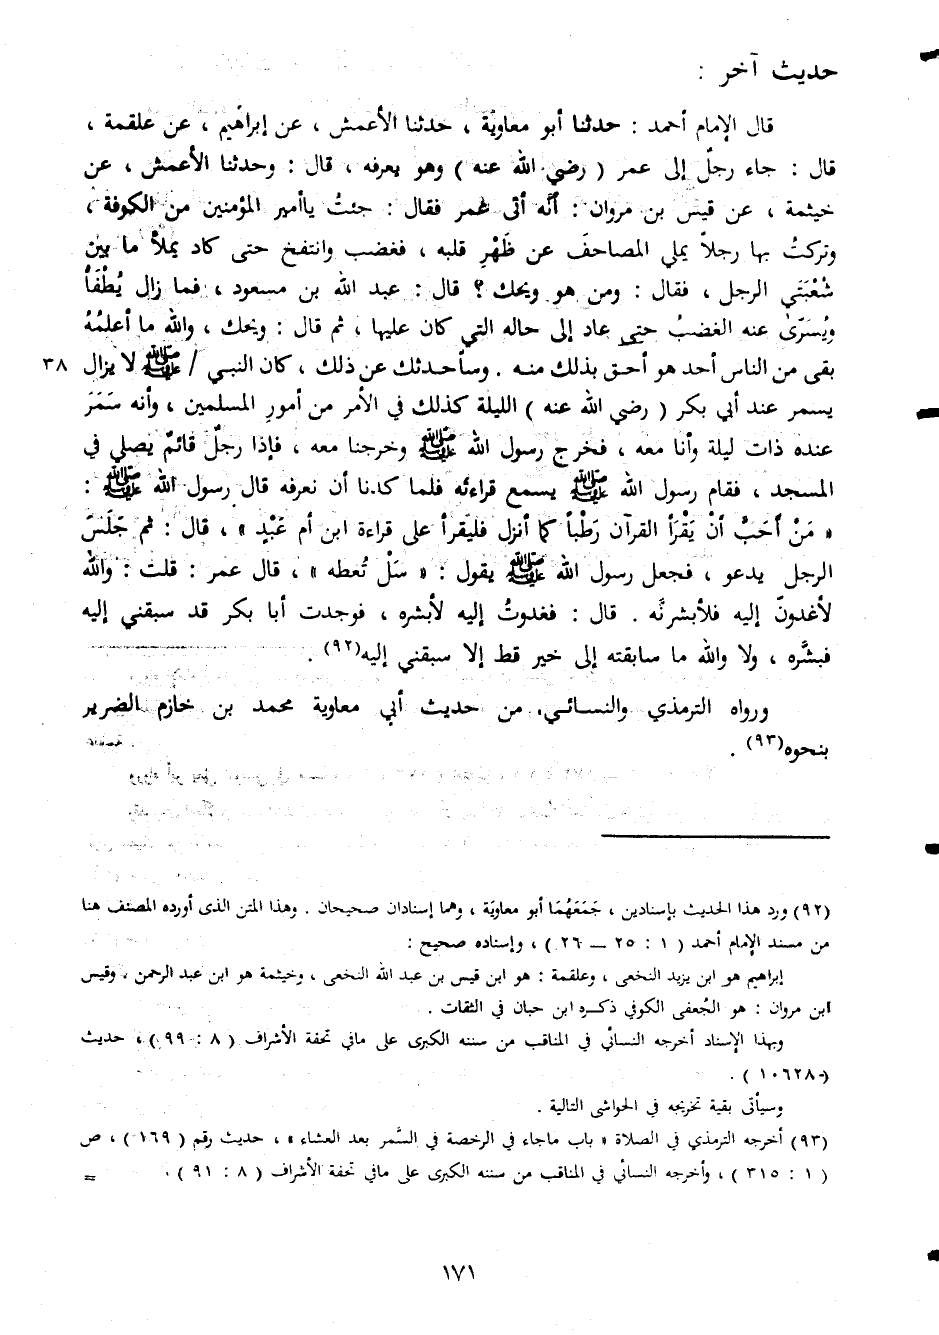 حديث آخر :
قال الإمام أحمد : حدثنا أبو معاويَة ، حدثنا الأعمش ، عن إبراهيم ، عن علقمة ،
قال : جاء رجلٌ إلى عمر ( رضي الله عنه ) وهو يعرفه ، قال : وحدثنا الأعمش ، عن
خيثمة ، عن قيس بن مروان : أنَّه أتى عُمر فقال : جئتُ ياأمير المؤمنين من الكوفة ،
وتركتُ بها رجلاً يملي المصاحفَ عن ظَهْرِ قلبه ، فغضب وانتفخ حتى كاد يملأ ما بين
شُعْبَتَي الرجل ، فقال : ومن هو ويحك ؟ قال : عبد الله بن مسعود ، فما زال يُطْفَأُ
ويُسَرّىٰ عنه الغضبُ حتى عاد إلى حاله التي كان عليها ، ثم قال : ويحك ، والله ما أعلمُهُ
بقى من الناس أحد هو أحق بذلك منه . وسأحدثك عن ذلك ، كان النبي / ﷺ لا يزال ٣٨
يسمر عند أبي بكر ( رضي الله عنه ) الليلة كذلك في الأمر من أمورِ المسلمين ، وأنه سَمَرَ
عنده ذات ليلة وأنا معه ، فخرج رسول الله ﷺ وخرجنا معه ، فإذا رجلٌ قائمٌ يصلي في
المسجد ، فقام رسول الله ﷺ يسمع قراءته فلما كدنا أن نعرفه قال رسول الله ﷺ :
« مَنْ أَحَبَّ أنْ يَقْرَأَ القرآن رَطْباً كما أنزل فليَقرأ على قراءة ابن أم عَبْدٍ » ، قال : ثم جَلَسَ
الرجل يدعو ، فجعل رسول الله ﷺ يقول : « سَلْ تُعطه » ، قال عمر : قلت : والله
لأغدونّ إليه فلأبشرنَّه . قال : فغدوتُ إليه لأبشره ، فوجدت أبا بكر قد سبقني إليه
فبشَّره ، ولا والله ما سابقته إلى خير قط إلا سبقني إليه(٩٢) .
ورواه الترمذي والنسائي، من حديث أبي معاوية محمد بن خازم الضرير
بنحوه(٩٣) .
(٩٢) ورد هذا الحديث بإسنادين ، جَمَعَهُمَا أبو معاويَة ، وهما إسنادان صحيحان . وهذا المتن الذى أورده المصنف هنا
من مسند الإمام أحمد ( ١ : ٢٥ – ٢٦ ) ، وإسناده صحيح :
إبراهيم هو ابن يزيد النخعى ، وعلقمة : هو ابن قيس بن عبد الله النخعى ، وخيثمة هو ابن عبد الرحمن ، وقيس
ابن مروان : هو الجُعفى الكوفي ذكره ابن حبان في الثقات .
وبهذا الإسناد أخرجه النسائي في المناقب من سننه الكبرى على مافي تحفة الأشراف ( ٨ : ٩٩ ) ، حديث
( ١٠٦٢٨ ) .
وسيأتى بقية تخريجه في الحواشى التالية .
(٩٣) أخرجه الترمذي في الصلاة « باب ماجاء في الرخصة في السَّمر بعد العشاء » ، حديث رقم ( ١٦٩ ) ، ص
( ١ : ٣١٥ ) ، وأخرجه النسائي في المناقب من سننه الكبرى على مافي تحفة الأشراف ( ٨ : ٩١ ) ، =
١٧١